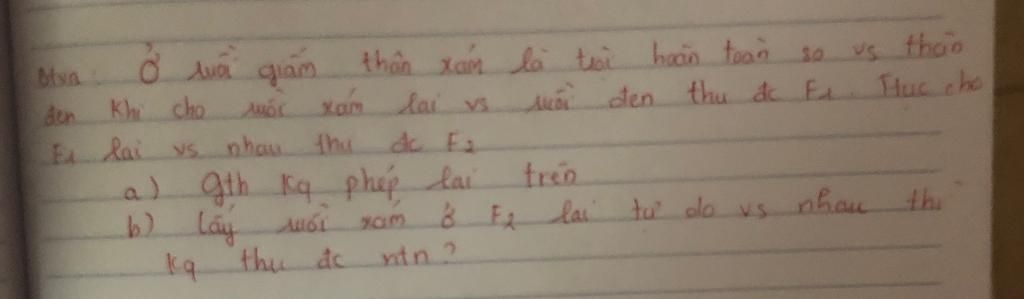 Btvn: Ở ruồi giấm thân xám là trội hoàn toàn so vs thân
đen Khi cho ruồi xám lai vs ruồi đen thu đc F1. Tiếp cho
F1 lai vs nhau thu đc F2
a) gth kq phép lai trên
b) lấy ruồi xám ở F2 lai tự do vs nhau thì
kq thu đc ntn?